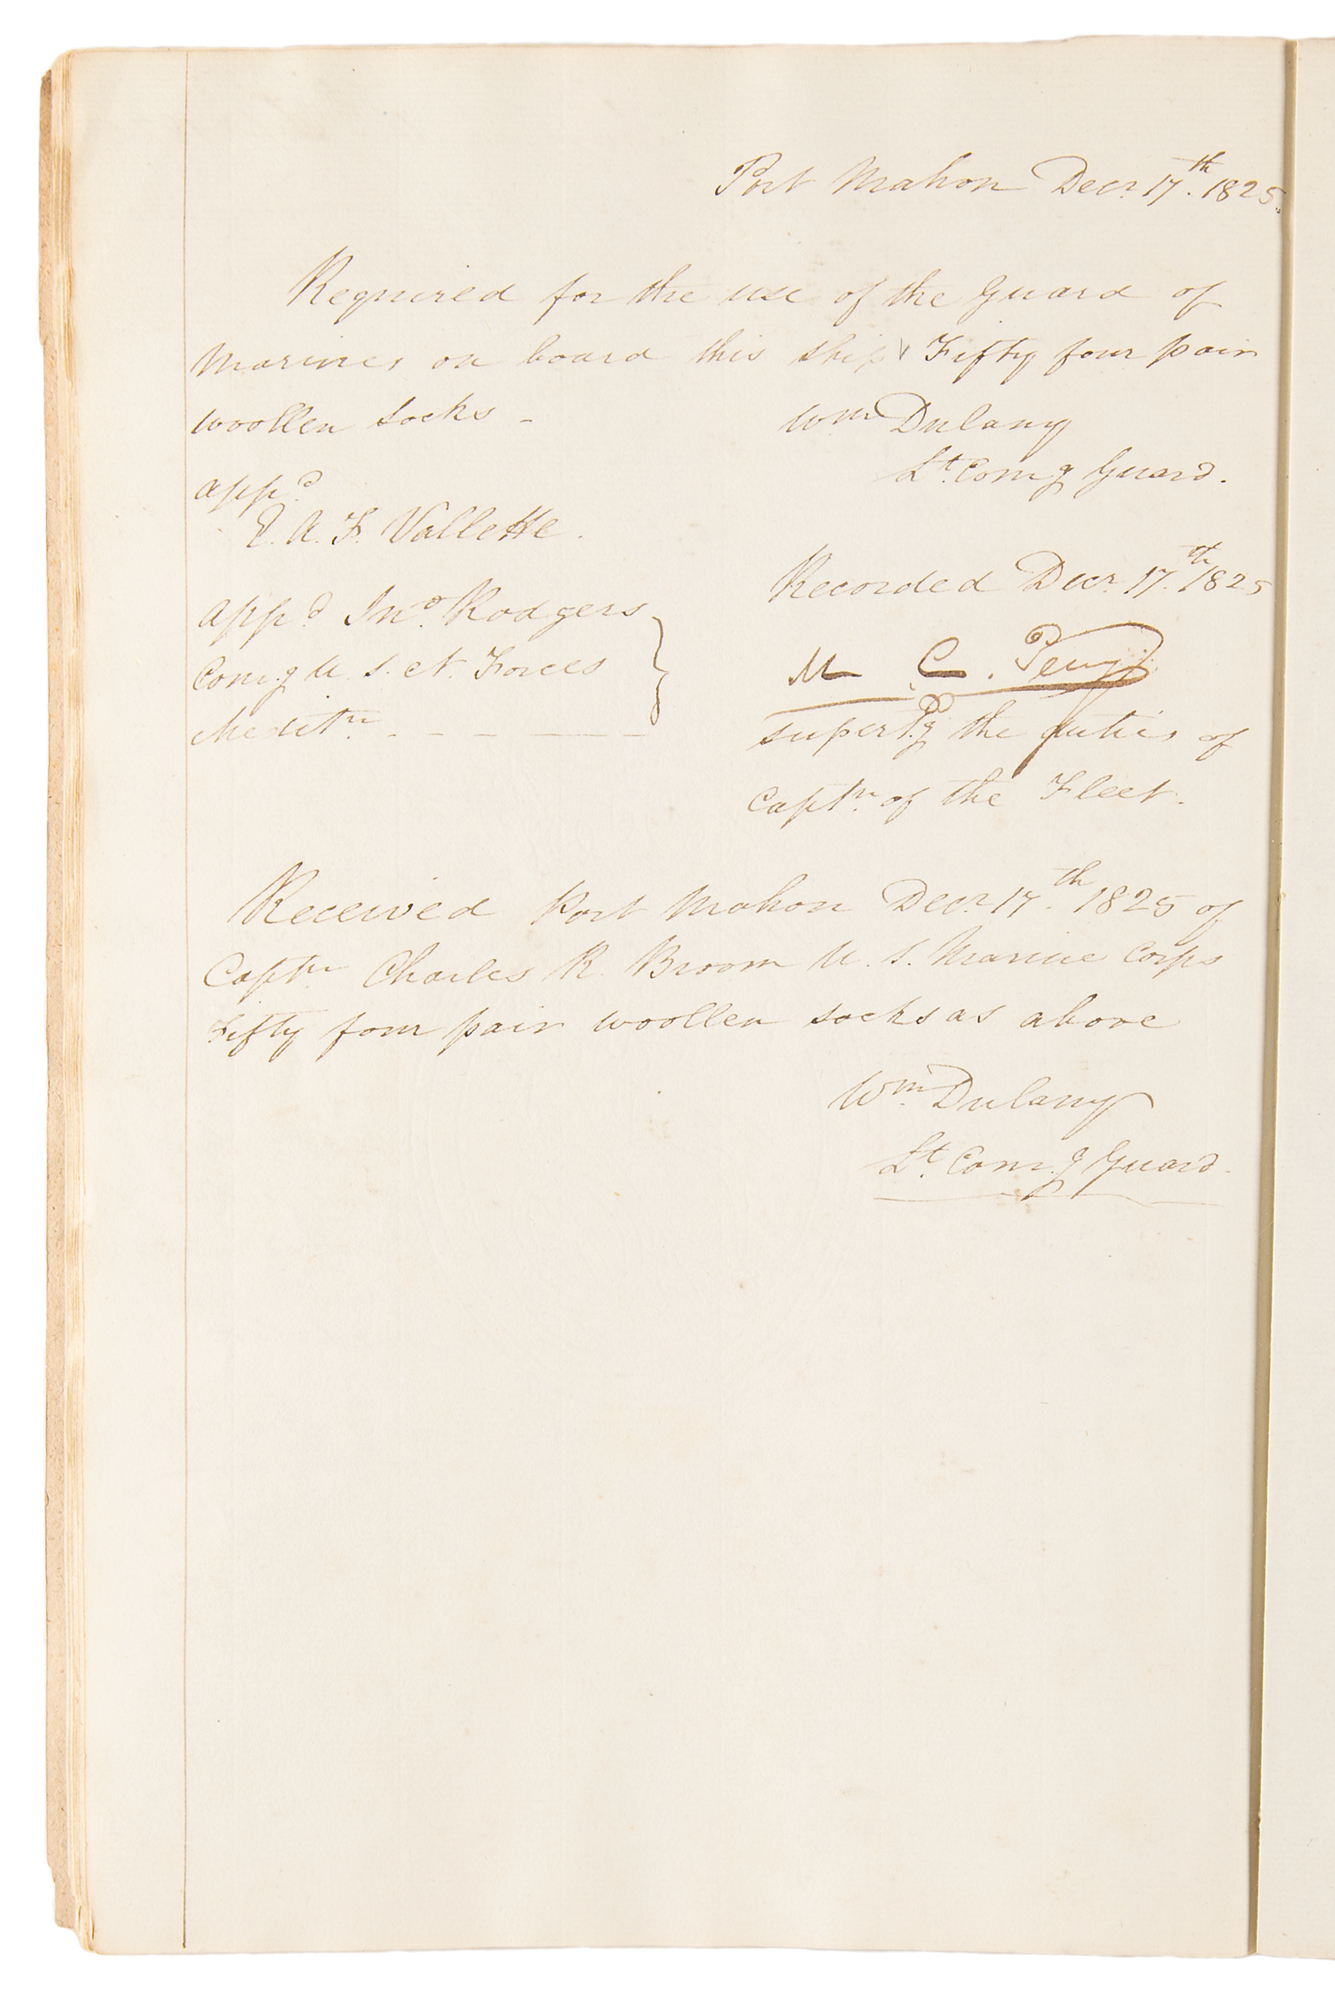 Port Mahon Decr. 17th. 1825.
Required for the use of the Guard of
Marines on board this ship Fifty four pair
woollen socks -
Wm Dulany
Lt. Comg Guard.
appd
E. A. F. Vallette.
Recorded Decr. 17th. 1825
appd. Jno. Rodgers
Comg U. S. N. Forces
Meditn. - - - - -
M. C. Perry
superg the duties of
Captn. of the Fleet.
Received Port Mahon Decr. 17th. 1825 of
Captn Charles R. Broom U. S. Marine Corps
Fifty four pair woollen socks as above
Wm. Dulany
Lt. Comg Guard.